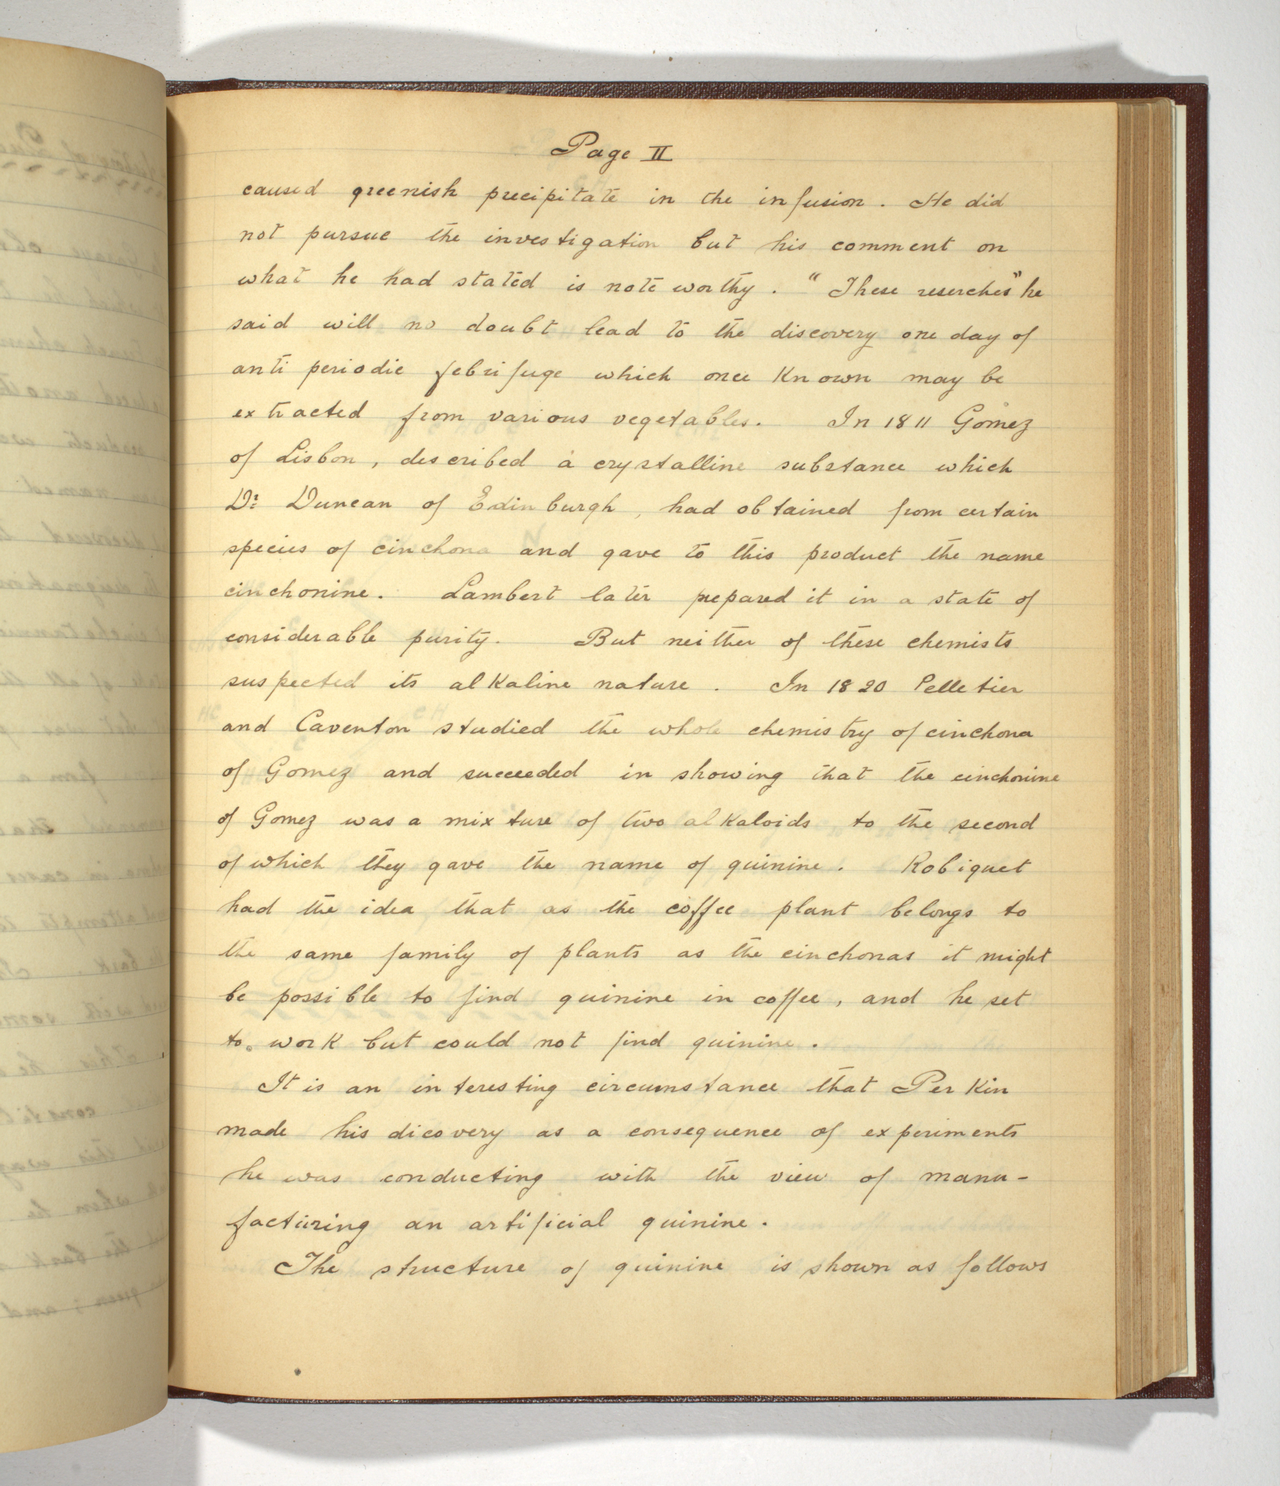 Page II
caused greenish precipitate in the infusion. He did
not pursue the investigation but his comment on
what he had stated is note worthy. "These reserches" he
said will no doubt lead to the discovery one day of
anti periodic febrifuge which once known may be
extracted from various vegetables. In 1811 Gomez
of Lisbon, described a crystalline substance which
Dr. Duncan of Edinburgh, had obtained from certain
species of cinchona and gave to this product the name
cinchonine. Lambert later prepared it in a state of
considerable purity. But neither of these chemists
suspected its alkaline nature. In 1820 Pelletier
and Caventon studied the whole chemistry of cinchona
of Gomez and succeeded in showing that the cinchonine
of Gomez was a mixture of two alkaloids to the second
of which they gave the name of quinine. Robiquet
had the idea that as the coffee plant belongs to
the same family of plants as the cinchonas it might
be possible to find quinine in coffee, and he set
to work but could not find quinine.
It is an interesting circumstance that Perkin
made his dicovery as a consequence of experiments
he was conducting with the view of manu-
facturing an artificial quinine.
The structure of quinine is shown as follows